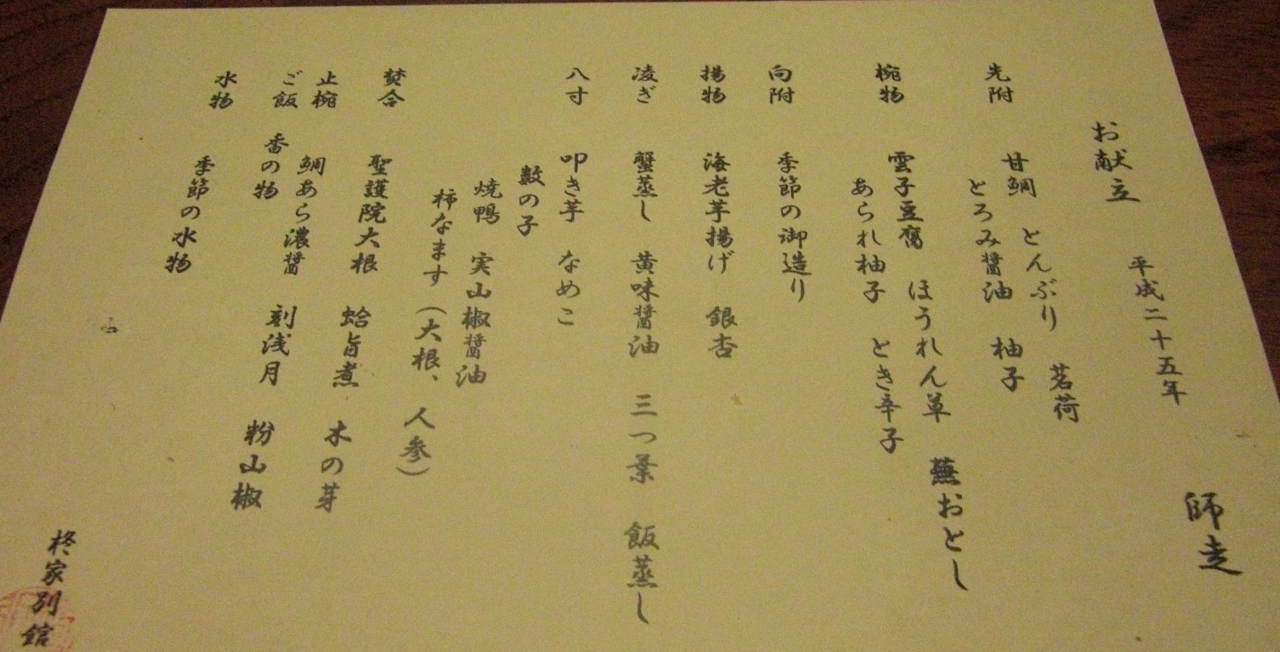 お献立 平成二十五年 師走
先附 甘鯛 とんぶり 茗荷
とろみ醤油 柚子
椀物 雲子豆腐 ほうれん草 蕪おとし
あられ柚子 とき辛子
向附 季節の御造り
揚物 海老芋揚げ 銀杏
凌ぎ 蟹蒸し 黄味醤油 三つ葉 飯蒸し
八寸 叩き芋 なめこ
数の子
焼鴨 実山椒醤油
柿なます（大根、人参）
焚合 聖護院大根 蛤旨煮 木の芽
止椀 鯛あら濃醤 刻浅月 粉山椒
ご飯 香の物
水物 季節の水物
柊家別館